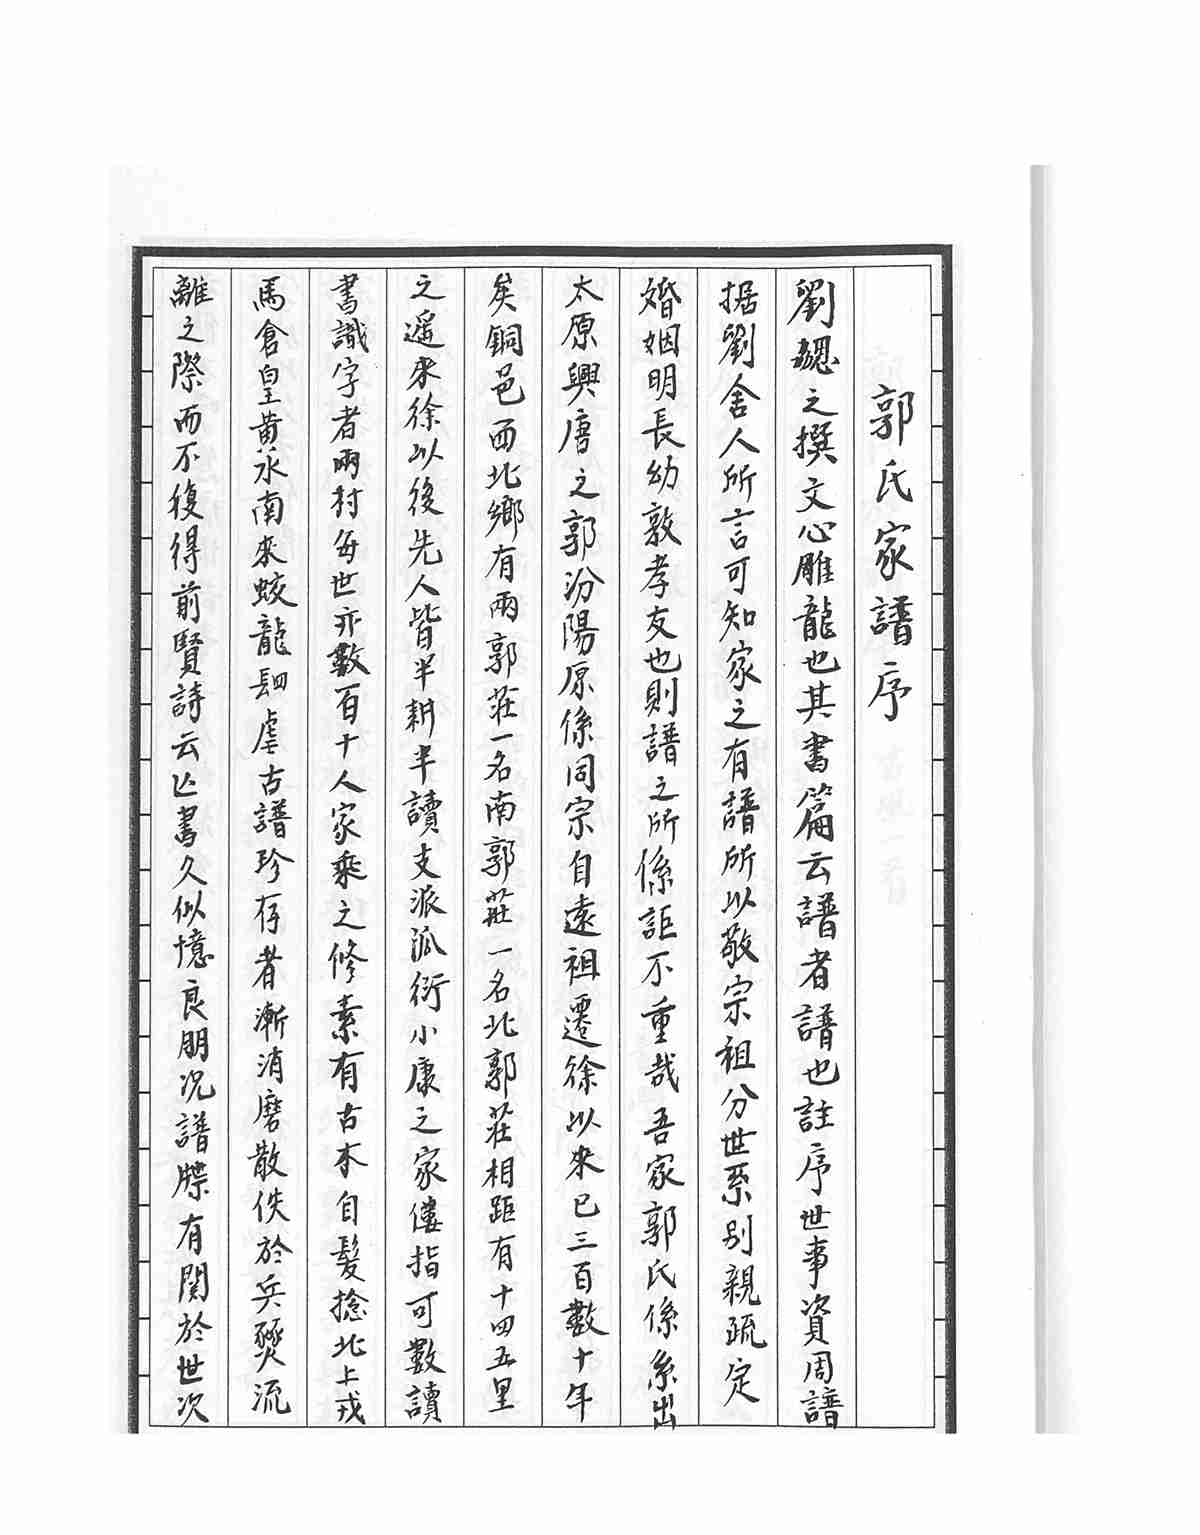 郭氏家譜序
劉勰之撰文心雕龍也其書篇云譜者譜也註序世事資周譜
据劉舍人所言可知家之有譜所以敬宗祖分世系别親疏定
婚姻明長幼敦孝友也則譜之所係詎不重哉吾家郭氏係系出
太原興唐之郭汾陽原係同宗自遠祖遷徐以來已三百數十年
矣銅邑西北鄉有兩郭莊一名南郭莊一名北郭莊相距有十四五里
之遥來徐以後先人皆半耕半讀支派派衍小康之家僂指可數讀
書識字者兩村每世亦數百十人家乘之修素有古本自髮捻北上戎
馬倉皇黄泳南來蛟龍肆虐古譜珍存者漸消磨散佚於兵燹流
離之際而不復得前賢詩云亡書久似憶良朋况譜牒有関於世次